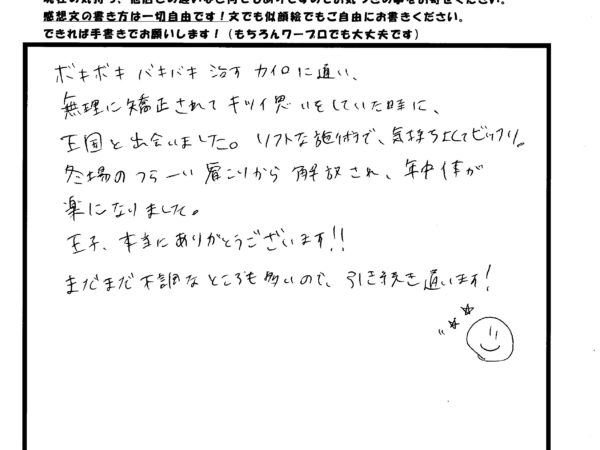 感想文の書き方は一切自由です！文でも似顔絵でもご自由にお書きください。
できれば手書きでお願いします！（もちろんワープロでも大丈夫です）
ボキボキ バキバキ 治す カイロに通い、
無理に矯正されて キツイ思いをしていた時に、
王国と出会いました。ソフトな施術で、気持ちよくてビックリ。
冬場のつら〜い肩こりから解放され、年中体が
楽になりました。
王子、本当にありがとうございます!!
まだまだ不調なところも多いので、引き続き通います!